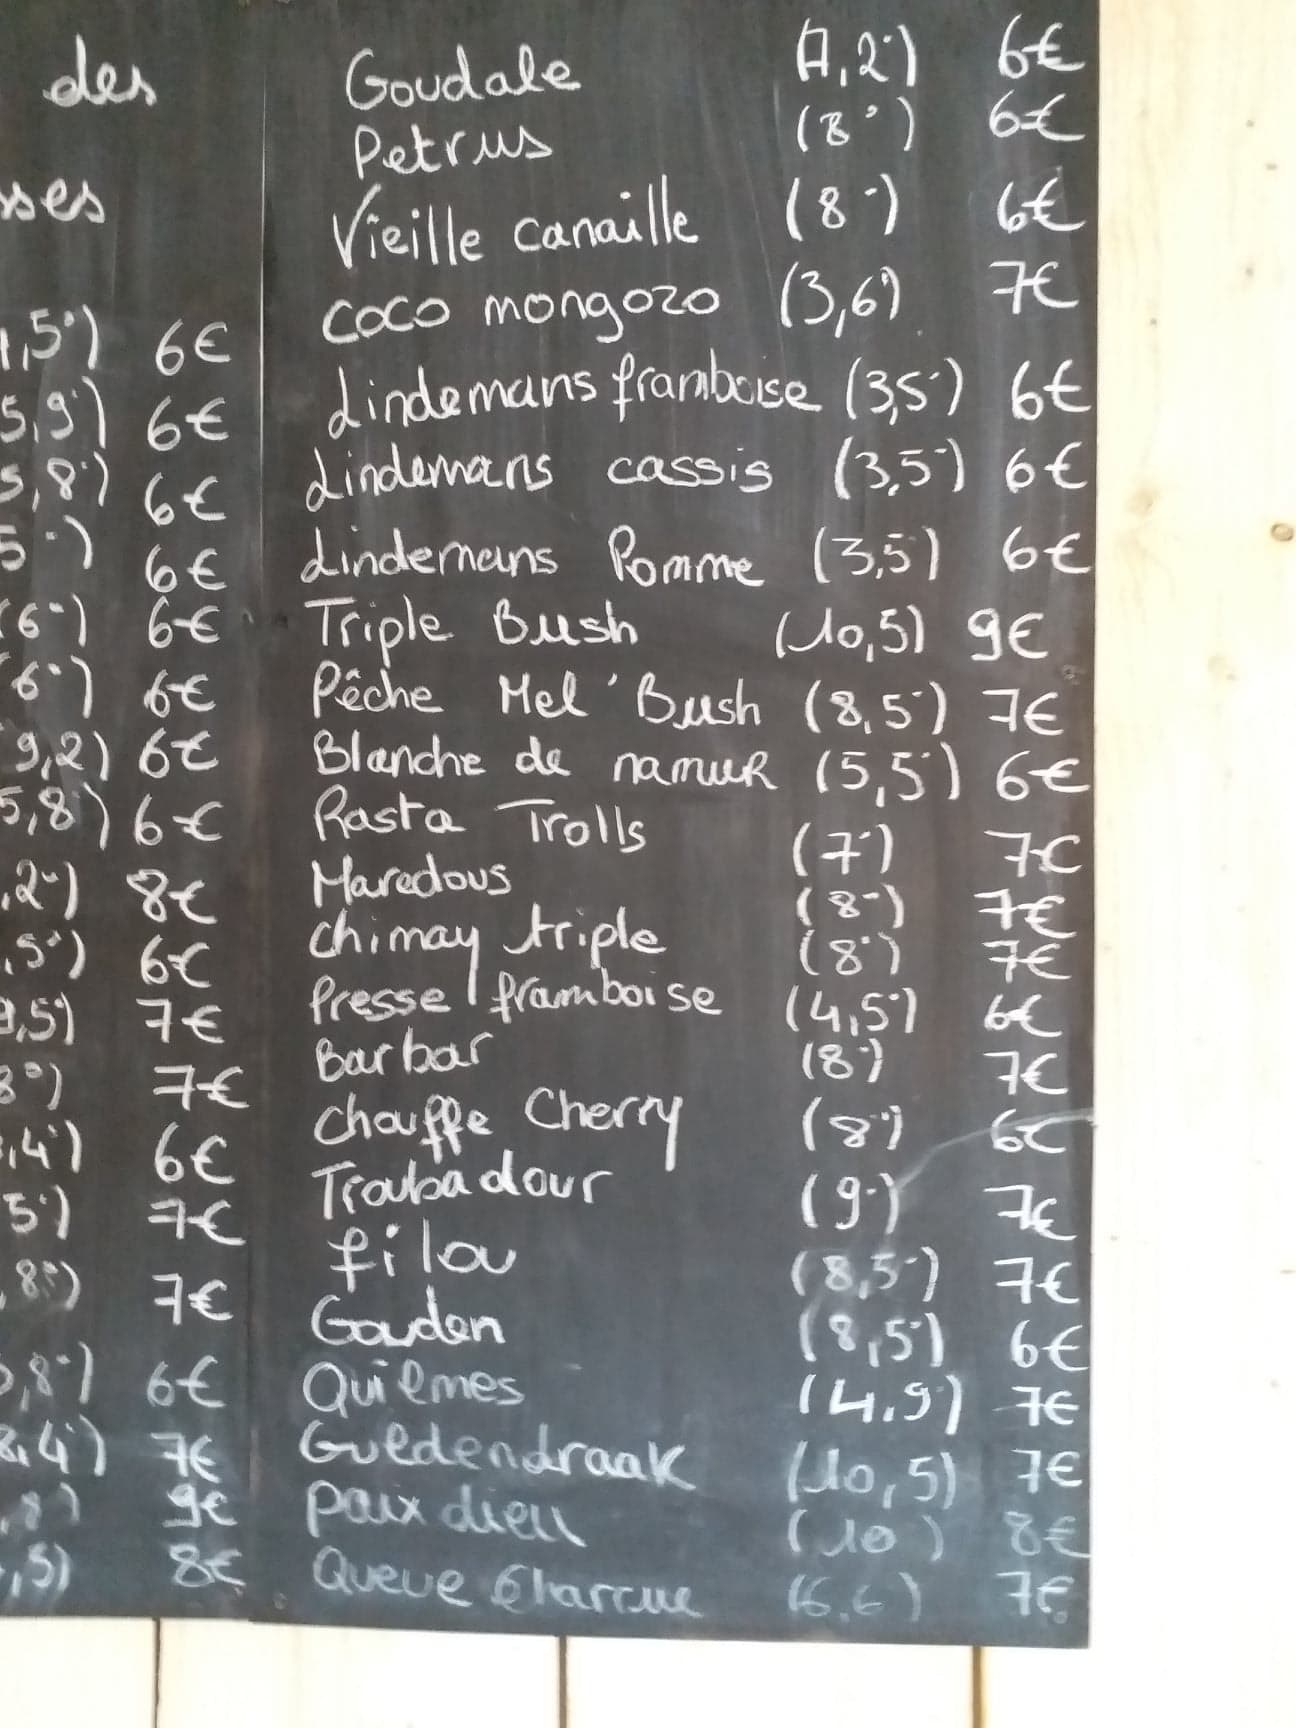 des
sses
,5°) 6€
5,9°) 6€
5,8°) 6€
5°) 6€
(6°) 6€
(6°) 6€
9,2) 6€
5,8°) 6€
,2°) 8€
,5°) 6€
,5°) 7€
8°) 7€
,4°) 6€
5°) 7€
,8°) 7€
,8°) 6€
8,4°) 7€
,8) 9€
,5) 8€
Goudale (7,2°) 6€
Petrus (8°) 6€
Vieille canaille (8°) 6€
coco mongozo (3,6°) 7€
Lindemans framboise (3,5°) 6€
Lindemans cassis (3,5°) 6€
Lindemans Pomme (3,5°) 6€
Triple Bush (10,5) 9€
Pêche Mel'Bush (8,5°) 7€
Blanche de namuR (5,5°) 6€
Rasta Trolls (7°) 7€
Maredous (8°) 7€
Chimay triple (8°) 7€
Presse framboise (4,5°) 6€
Barbar (8°) 7€
Chouffe Cherry (8°) 6€
Troubadour (9°) 7€
filou (8,5°) 7€
Gouden (8,5°) 6€
Quilmes (4,9) 7€
Guldendraak (10,5) 7€
paix dieu (10) 8€
Queue (6,6) 7€